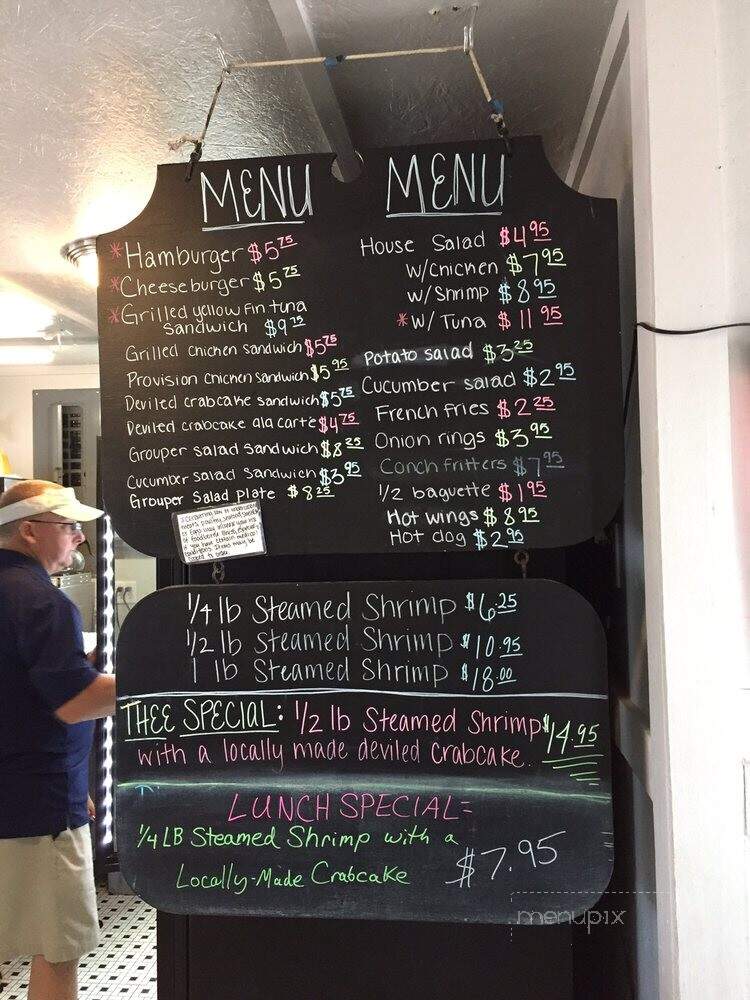 MENU
*Hamburger $5.75
*Cheeseburger $5.75
*Grilled yellow fin tuna
Sandwich $9.75
Grilled chicken sandwich $5.75
Provision chicken sandwich $5.95
Deviled crabcake sandwich $5.75
Deviled crabcake ala carte $4.75
Grouper salad Sandwich $8.25
Cucumber salad Sandwich $3.95
Grouper Salad Plate $8.25
MENU
House Salad $4.95
w/chicken $7.95
w/Shrimp $8.95
*w/ Tuna $11.95
Potato salad $3.25
Cucumber salad $2.95
French fries $2.25
Onion rings $3.95
Conch fritters $7.95
1/2 baguette $1.95
Hot wings $8.95
Hot dog $2.95
1/4 lb Steamed Shrimp $6.25
1/2 lb Steamed Shrimp $10.95
1 lb Steamed Shrimp $18.00
THEE SPECIAL: 1/2 lb Steamed Shrimp $14.95
with a locally made deviled crabcake.
LUNCH SPECIAL=
1/4 LB Steamed Shrimp with a
Locally-Made Crabcake $7.95
menupix